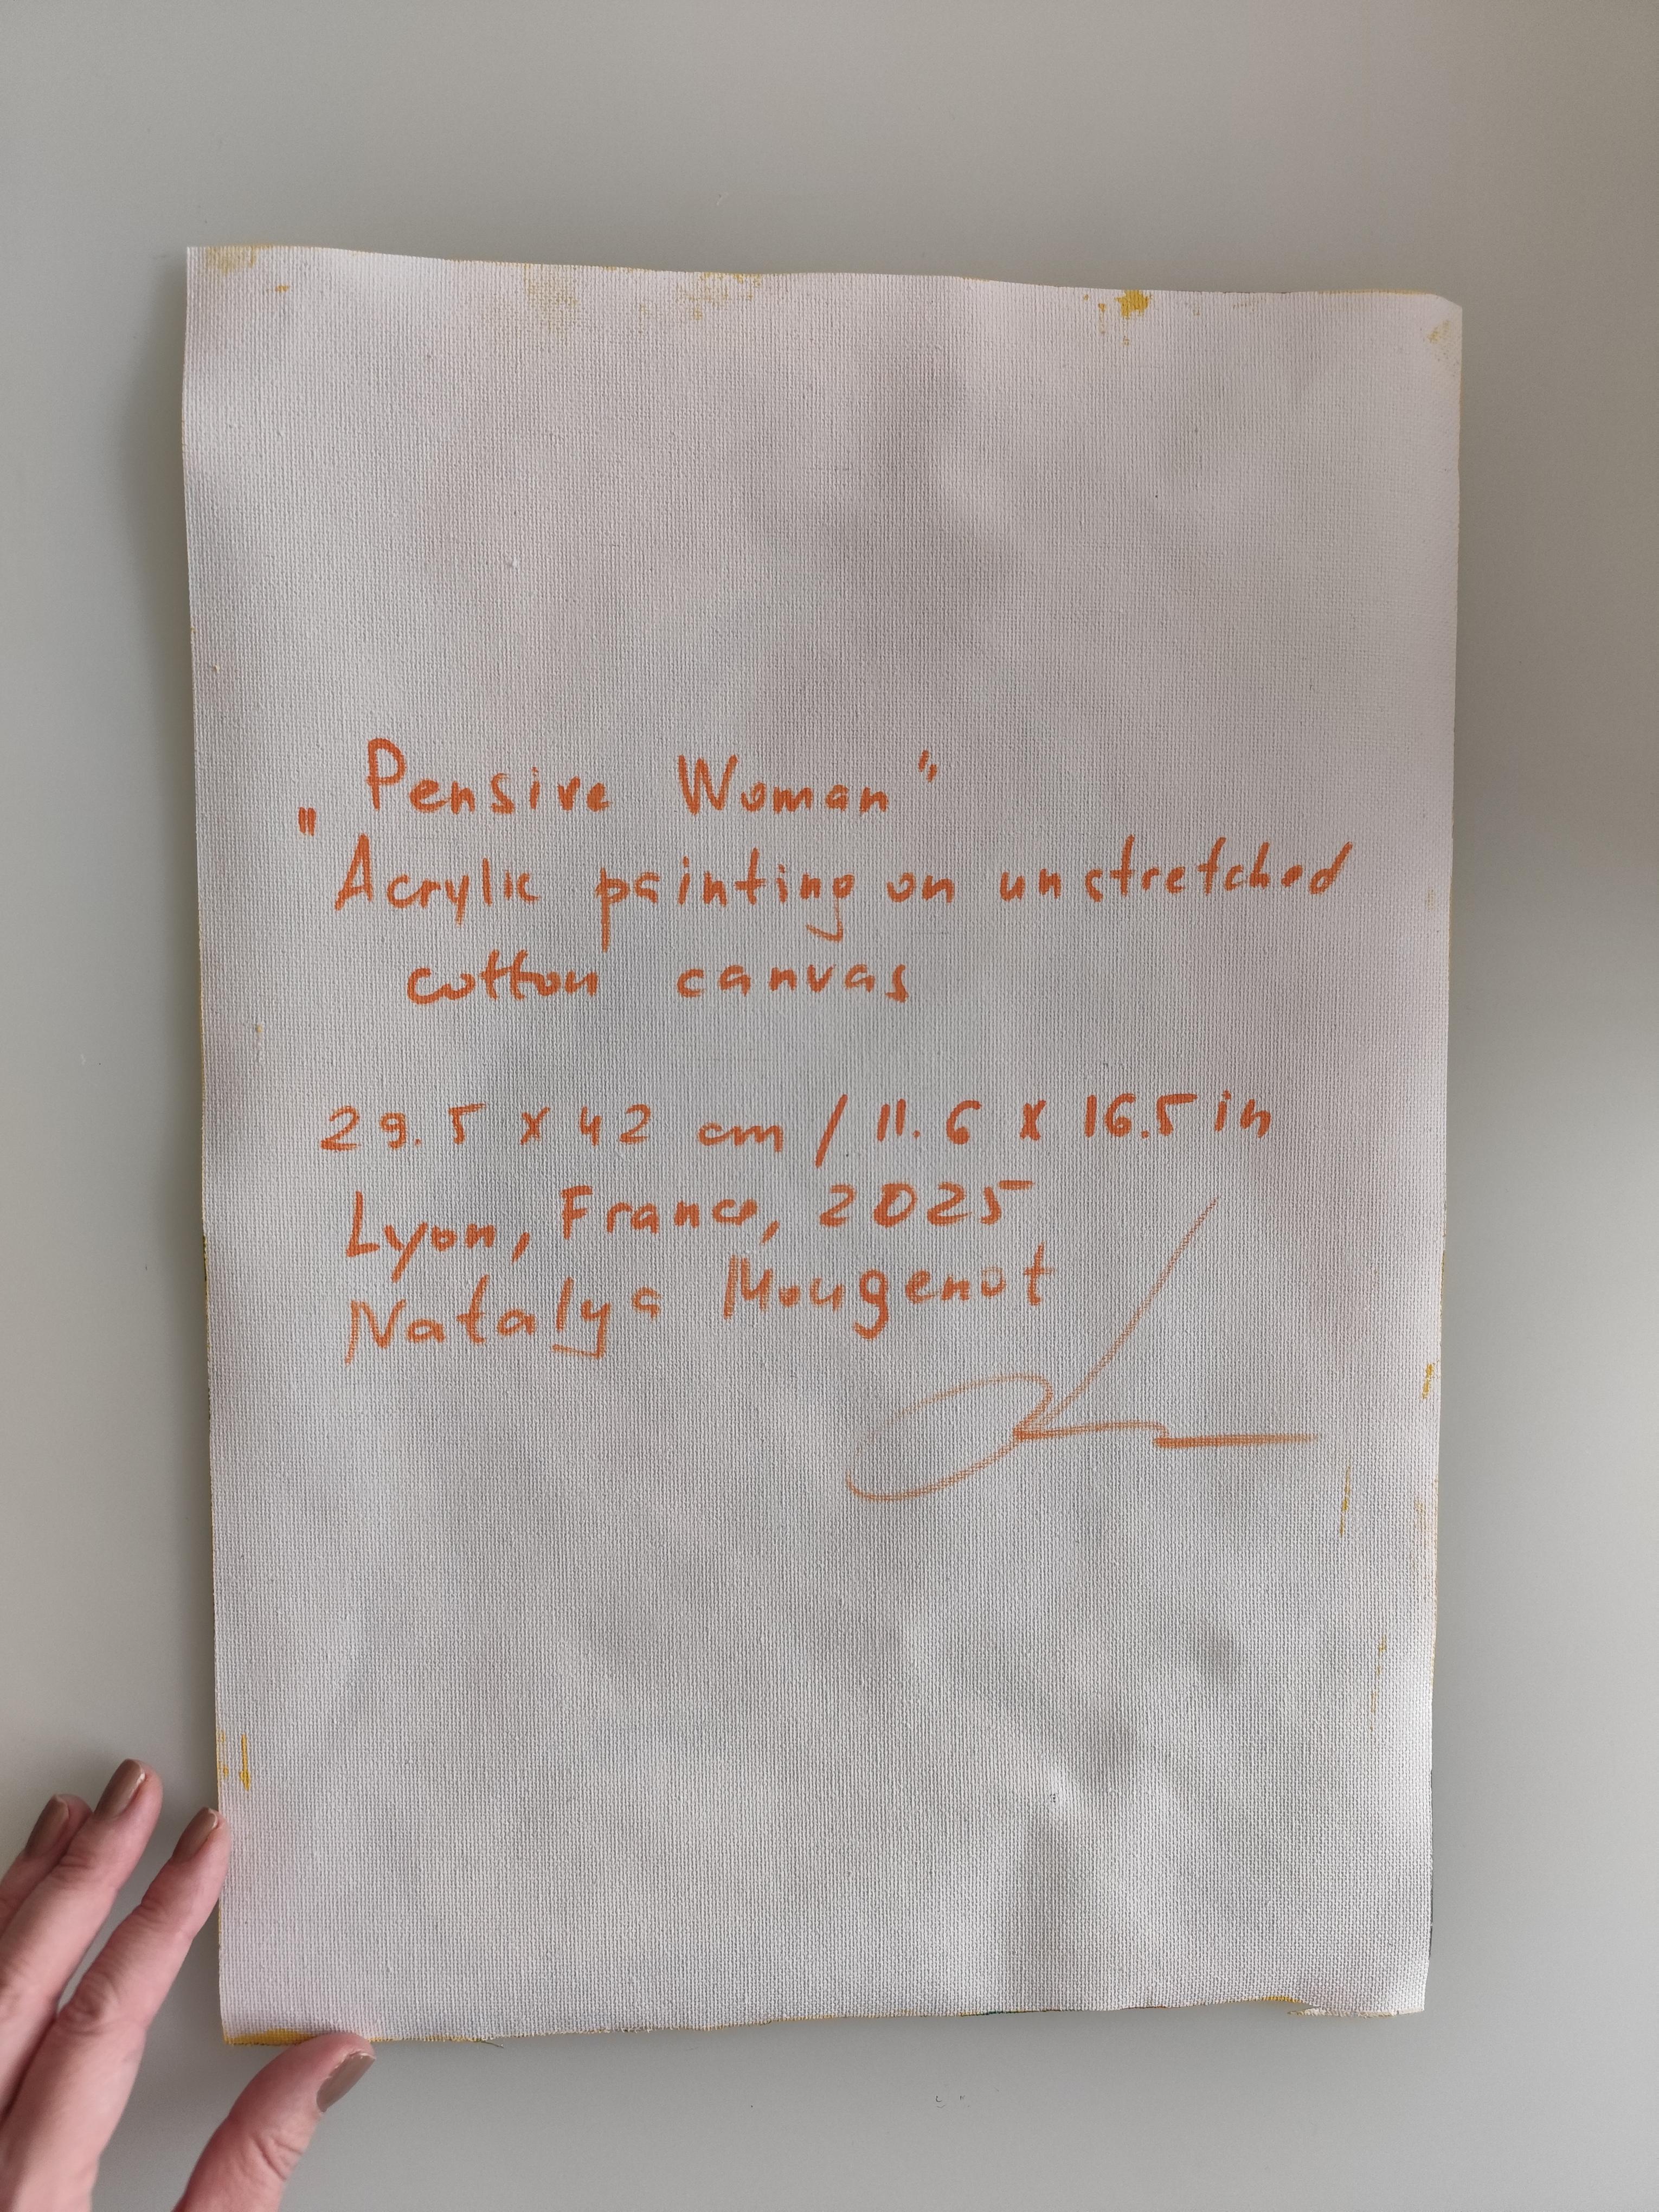 „Pensive Woman“
Acrylic painting on unstretched
cotton canvas
29.5 x 42 cm / 11.6 x 16.5 in
Lyon, France, 2025
Natalya Mougenot